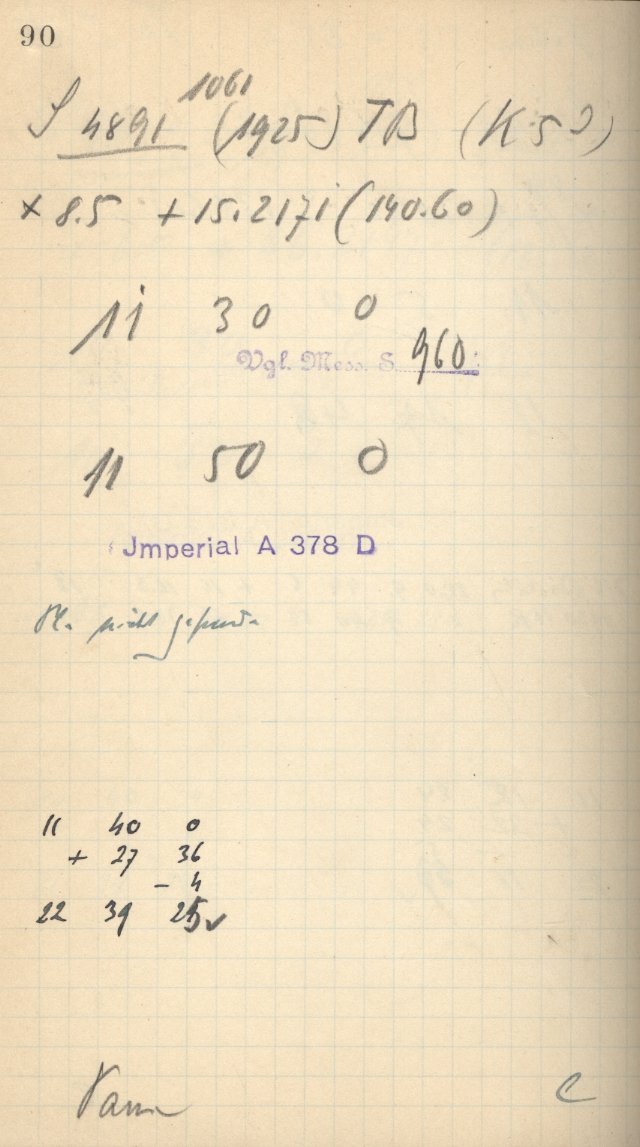 90
1061
S 4891 (1925) TB (K 5 )
× 8.5 + 15.2171 (140.60)
11 30 0
Vgl. Mess. S. 960
11 50 0
Jmperial A 378 D
Pl. nicht gefund.
11 40 0
+ 27 36
- 4
22 39 25 ✓
C